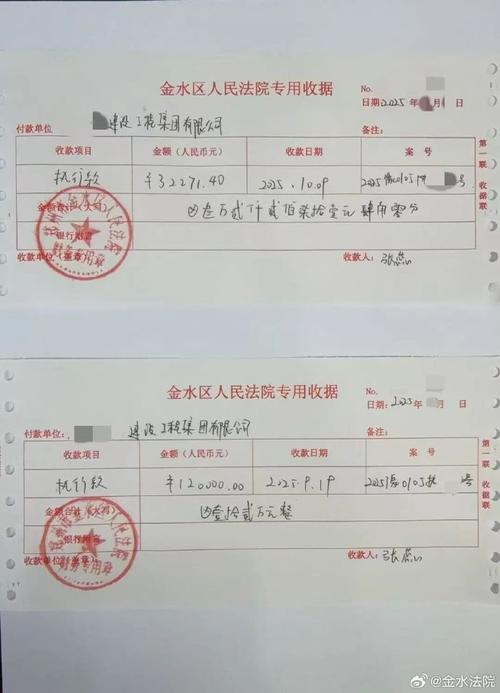 金水区人民法院专用收据
No.
日期:2025 年 月 日
付款单位 建设工程集团有限公司
备注:
收款项目 金额（人民币元） 收款日期 案号
执行款 ¥32271.40 2025.10.09 2025豫0105执 号
金额合计(大写) 叁万贰仟贰佰柒拾壹元肆角零分
银行附言
收款单位(盖章) 收款人:
第一联 收据联
郑州市金水区人民法院
财务专用章
金水区人民法院专用收据
No.
日期:2025 年 月 日
付款单位: 建设工程集团有限公司
备注:
收款项目 金额（人民币元） 收款日期 案号
执行款 ¥120000.00 2025.9.19 2025豫0105执 号
金额合计(大写) 壹拾贰万元整
银行附言
收款单位(盖章) 收款人:
第一联 收据联
郑州市金水区人民法院
财务专用章
@金水法院